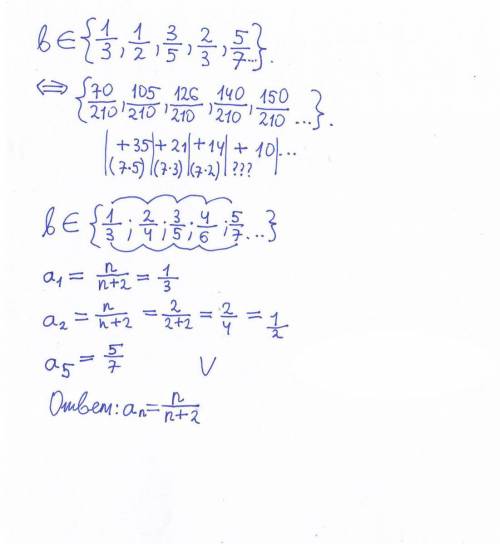 b ∈ {1/3, 1/2, 3/5, 2/3, 5/7...}.
⇔ {70/210, 105/210, 126/210, 140/210, 150/210 ...}.
| +35 | +21 | +14 | + 10 | ...
(7·5) | (7·3) | (7·2) | ???
b ∈ {1/3 ; 2/4 ; 3/5 ; 4/6 ; 5/7 ...}
a₁ = n/n+2 = 1/3
a₂ = n/n+2 = 2/2+2 = 2/4 = 1/2
a₅ = 5/7 V
Ответ: aₙ = n/n+2